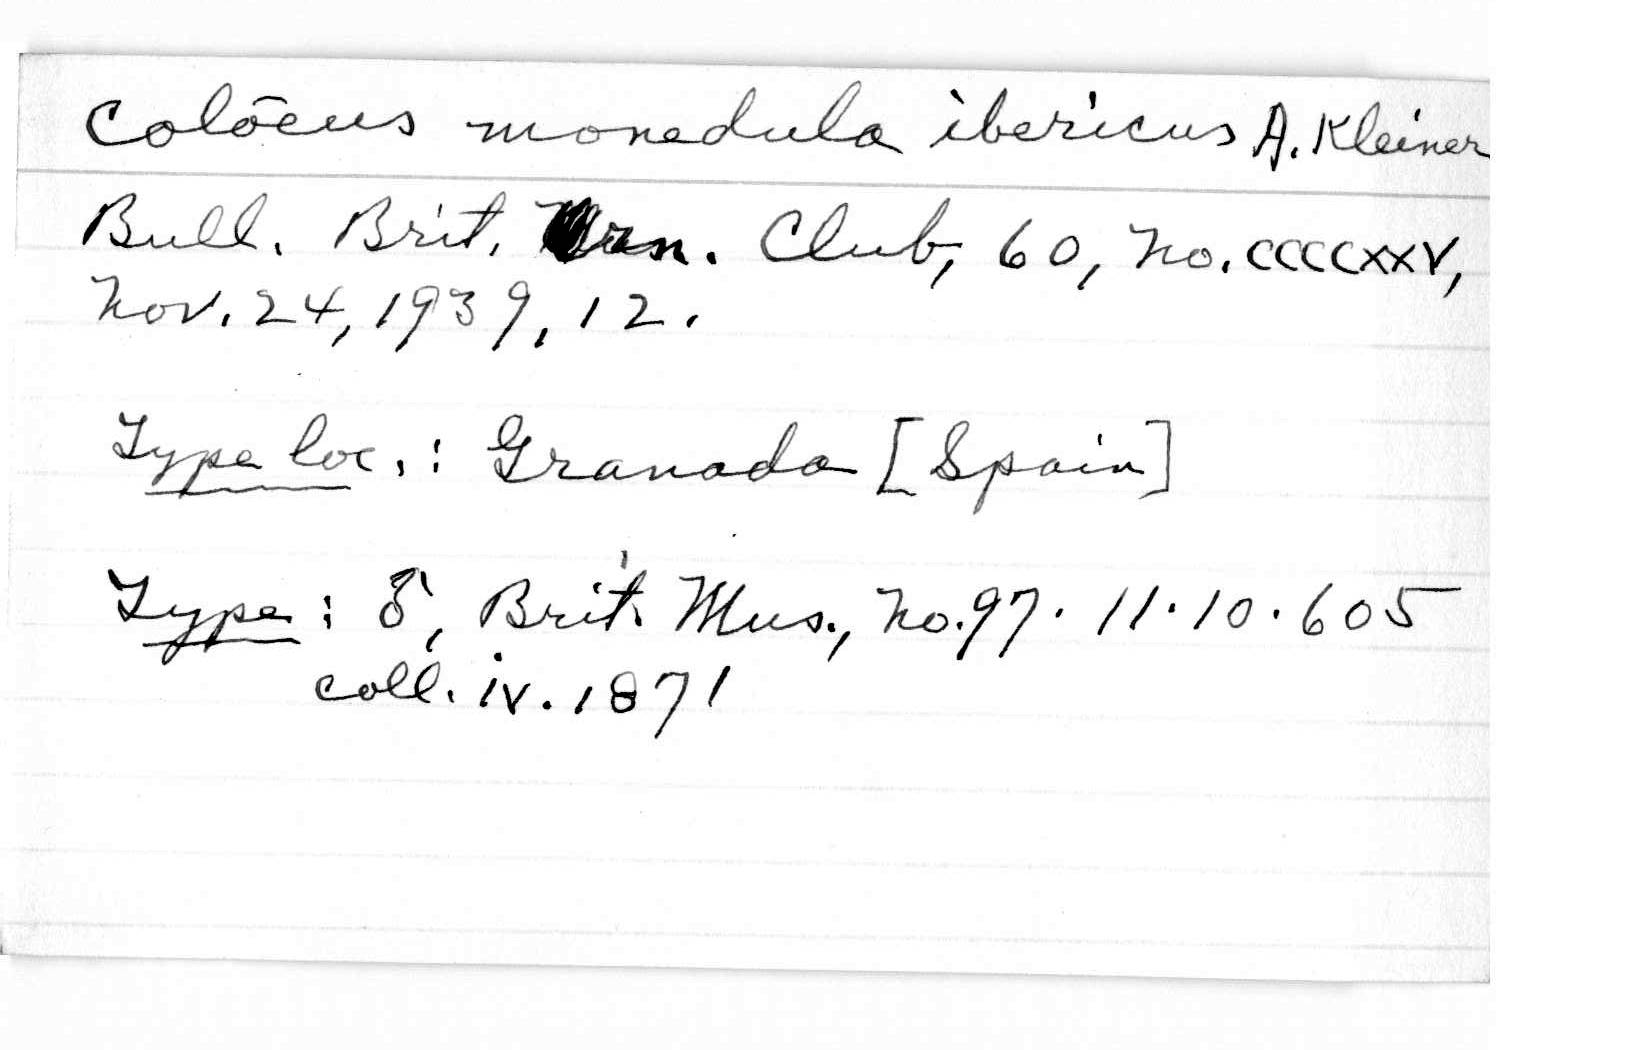 Colōeus monedula ibericus A. Kleiner
Bull. Brit. Orn. Club, 60, No. CCCCXXV,
Nov. 24, 1939, 12.
Type loc.: Granada [Spain]
Type: ♂, Brit. Mus., No. 97.11.10.605
coll. iv. 1871